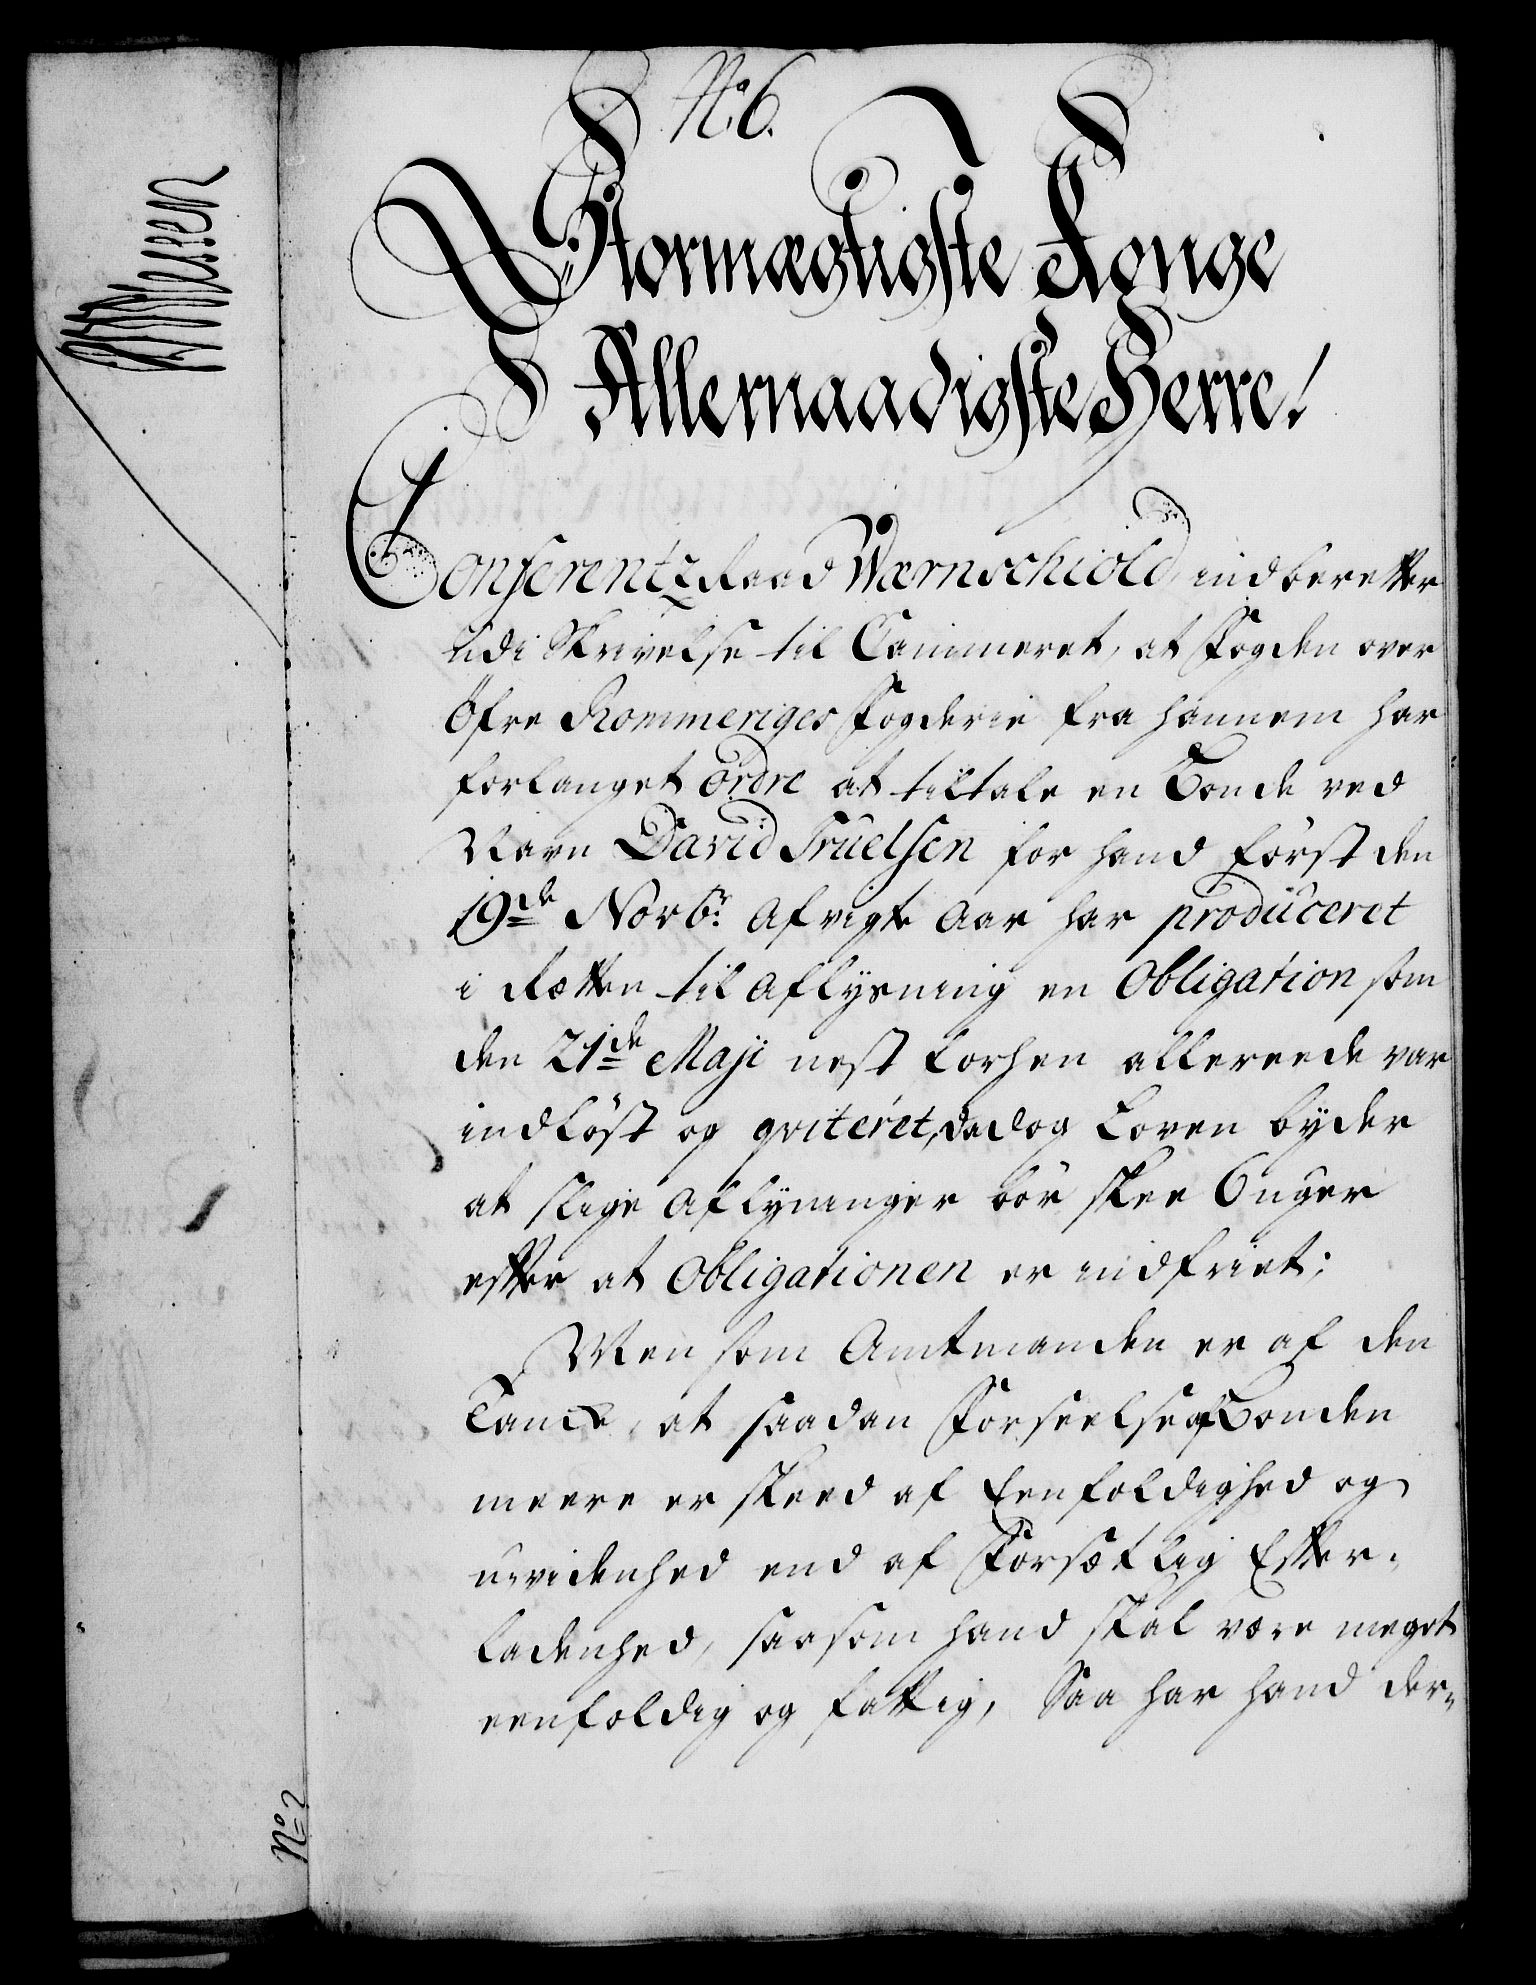 No 6.
Stormægtigste Konge
Allernaadigste Herre!
Conferentz Raad Wærnschiold indberetter
udi Skrivelse til Cammeret, at Fogden over
Öfre Rommeriges Fogderie fra hannem har
forlanget ordre at tiltale en Bonde ved
Navn David Truelsen for hand först den
19de Novbr. afvigte Aar har produceret
i Retten til aflysning en Obligation som
den 21de Maji nest forhen allereede var
indlöst og qviteret, da dog Loven byder
at slige aflysninger bör skee 6 uger
efter at Obligationen er indfriet;
Men som Amtmanden er af den
Tancke, at saadan Forseelse af Bonden
meere er skeed af Eenfoldighed og
uvidenhed end af Forsætlig Efter-
ladenhed, saasom hand skal være meget
eenfoldig og fattig, Saa har hand der-
Wessen
No 2